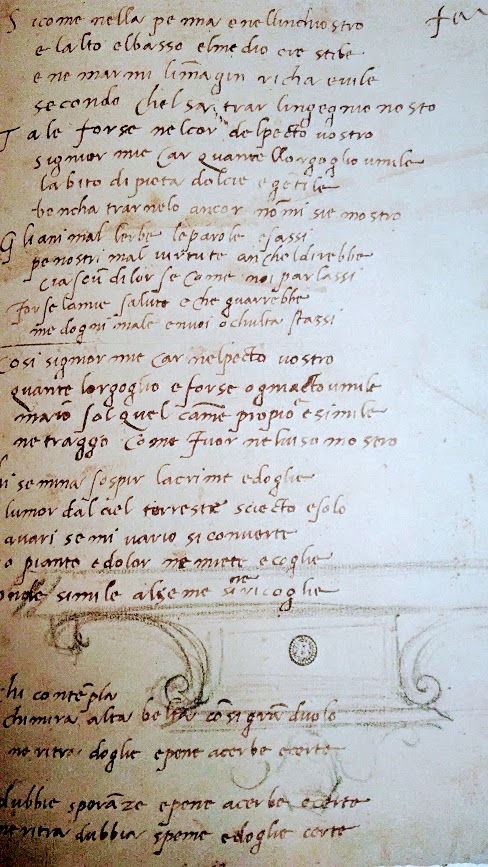 S icome nella penna e nellinchiostro
e lalto elbasso elmedio ore stile
e ne marmi limagin richa evile
secondo chel sa trar lingegnio nostro
Tale forse nelcor delpecto vostro
signior mie car quante llorgoglio umile
labito di pieta dolcie e getile
bencha trarnelo ancor nomi sie mostro
Gli animal lerbe leparole esassi
pe nostri mal virtute ancheldirebbe
ciascun dilor se come noi parlassi
forse lamie salute e che guarrebbe
me dogni male envoi ochulta stassi
Cosi signior mie car nelpecto vostro
quante lorgoglio e forse ogni acto umile
mario sol quel came propio e simile
ne traggo come fuor nelviso mostro
i semina sospir lacrime edoglie
lumor dal ciel terreste sciecto esolo
avari semi vario si converte
o pianto edolor ne miete ecoglie
simile alseme ne ricoglie
chi contepla
chimira alta belta cosi gra duolo
ne ritra doglie epene acerbe ecerte
dubbie speraze epene acerbe ecerte
ne ritra dubbia speme edoglie certe